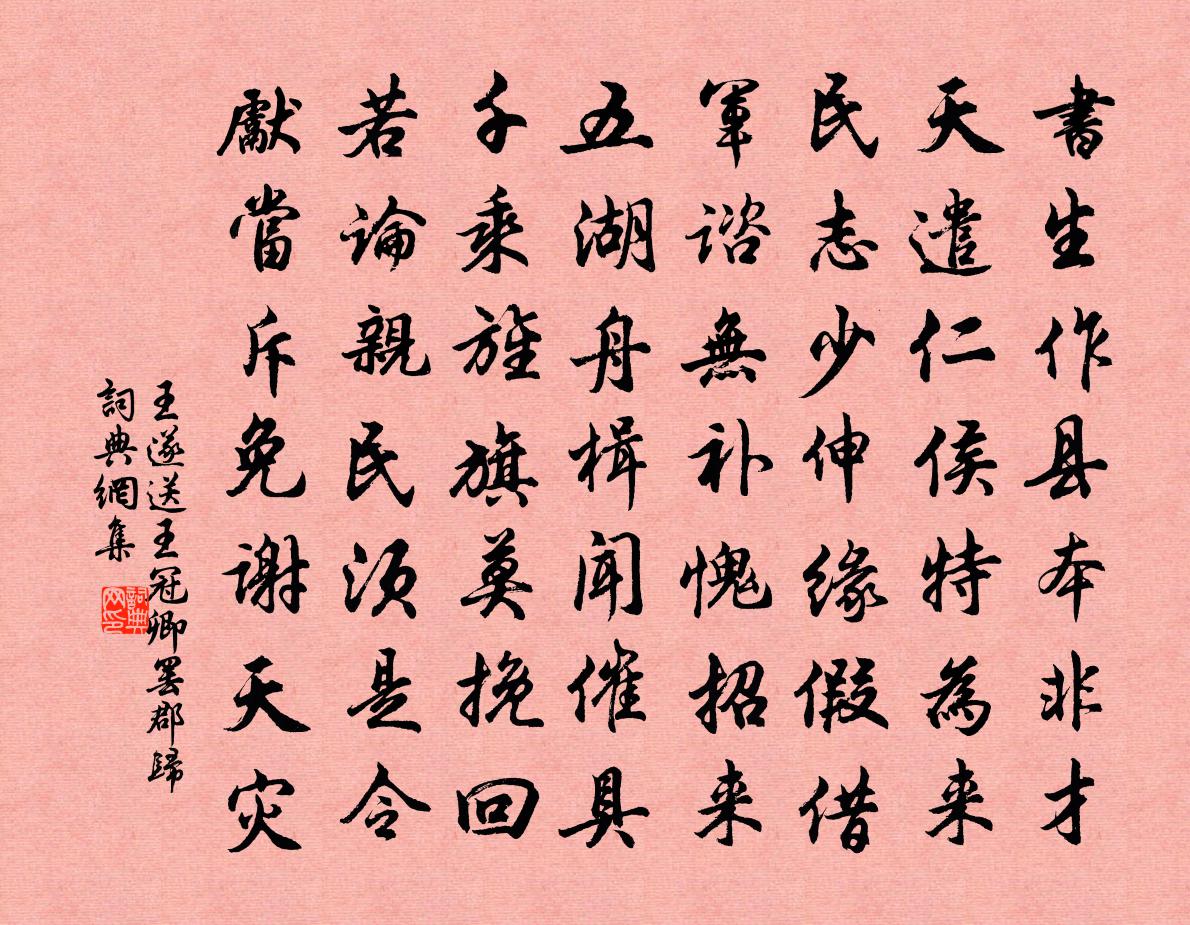 書生作县本非才
天遣仁侯特為来
民志少伸緣假借
軍諮無补愧招来
五湖舟楫聞催具
千乘旌旗莫挽回
若論親民須是令
獻當斥免謝天灾
王遂送王冠卿罢郡歸
詞典網集
詞典网印